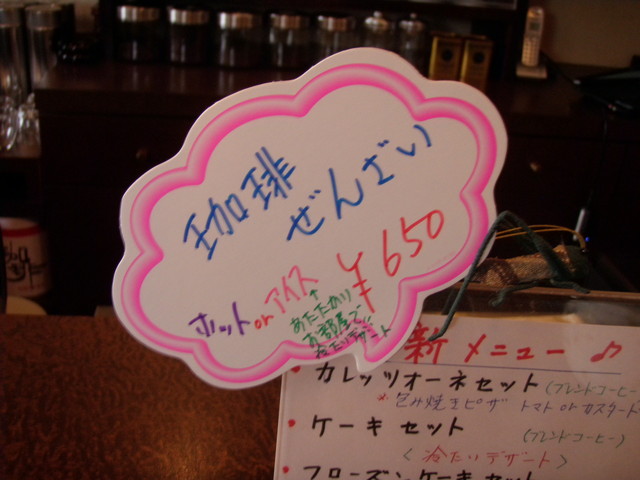 珈琲
ぜんざい
¥650
ホット or アイス
↑
あたたかい
お部屋で
冷たいデザート
新メニュー ♪
・カレッツオーネセット(ブレンドコーヒー
*包み焼きピザ トマト or カスタード
・ケーキセット (ブレンドコーヒー)
<冷たいデザート>
・フローズンケーキセット